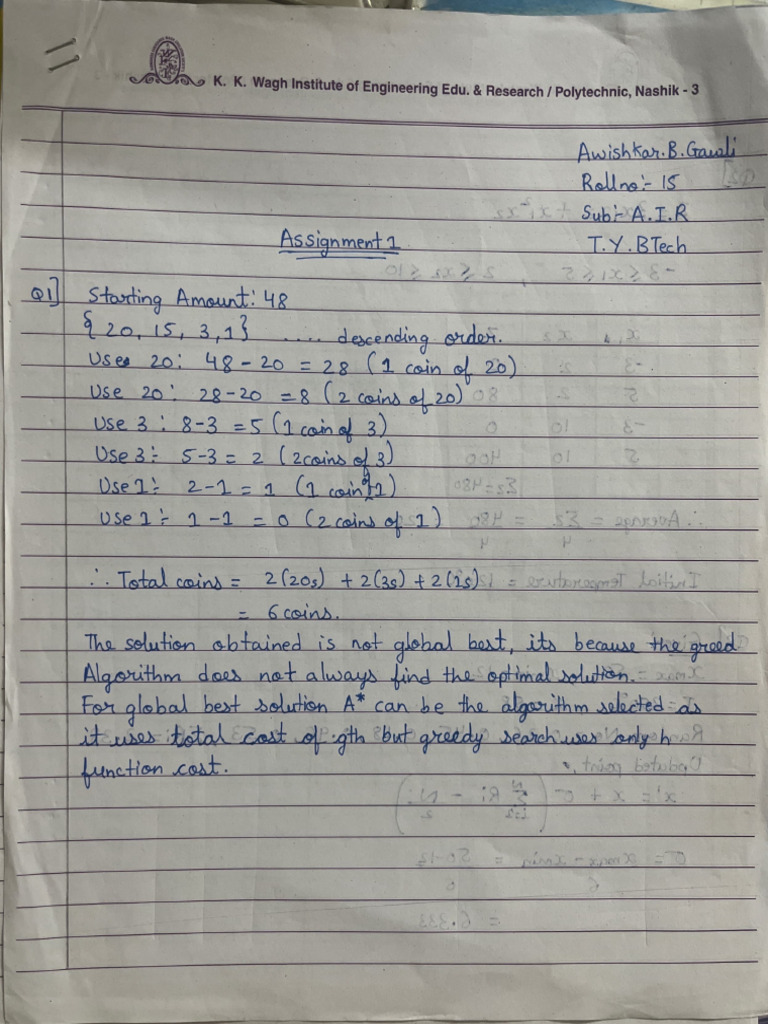 K. K. Wagh Institute of Engineering Edu. & Research / Polytechnic, Nashik - 3
Awishkar.B.Gawli
Rollno:- 15
Sub:- A.I.R
Assignment 1
T.Y.BTech
Q1] Starting Amount: 48
{ 20, 15, 3, 1} .... descending order.
Use 20: 48 - 20 = 28 (1 coin of 20)
Use 20: 28-20 = 8 (2 coins of 20)
Use 3 : 8-3 = 5 (1 coin of 3)
Use 3 :- 5-3 = 2 (2 coins of 3)
Use 1 :- 2-1 = 1 (1 coin of 1)
Use 1 :- 1-1 = 0 (2 coins of 1)
∴ Total coins = 2(20s) + 2(3s) + 2(1s)
= 6 coins.
The solution obtained is not global best, its because the greed
Algorithm does not always find the optimal solution.
For global best solution A* can be the algorithm selected as
it uses total cost of gth but greedy search uses only h
function cost.